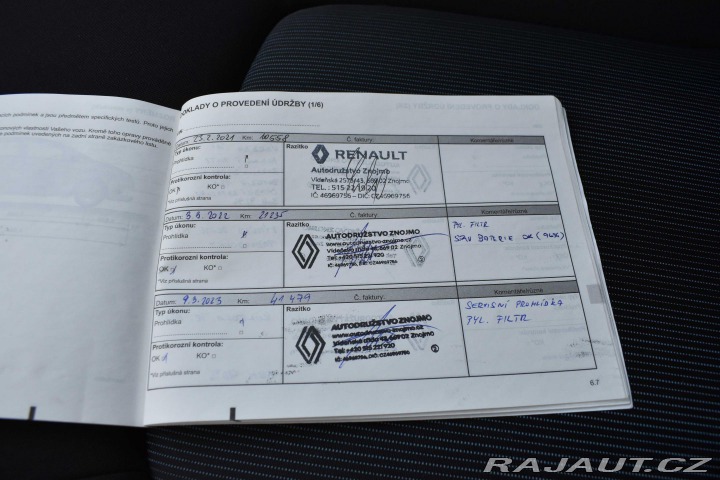 DOKLADY O PROVEDENÍ ÚDRŽBY (1/6)
Datum: 23.2.2021 Km: 10558 Č. faktury: Komentáře/různé
Typ úkonu: Razítko
Prohlídka
RENAULT
Autodružstvo Znojmo
Vídeňská 2573/43, 669 02 Znojmo
TEL.: 515 22 19 20
IČ: 46969756 – DIČ: CZ46969756
Protikorozní kontrola:
OK KO* □
*Viz příslušná strana
Datum: 3.6.2022 Km: 21235 Č. faktury: Komentáře/různé
Typ úkonu: Razítko
Prohlídka
AUTODRUŽSTVO ZNOJMO
www.autodruzstvo-znojmo.cz
Tel: +420 515 221 920
IČ: 46969756, DIČ: CZ46969756
PYL. FILTR
STAV BATERIE OK (94%)
Protikorozní kontrola:
OK KO* □
*Viz příslušná strana
Datum: 9.3.2023 Km: 41 479 Č. faktury: Komentáře/různé
Typ úkonu: Razítko
Prohlídka
AUTODRUŽSTVO ZNOJMO
www.autodruzstvo-znojmo.cz
Tel: +420 515 221 920
IČ: 46969756, DIČ: CZ46969756
SERVISNÍ PROHLÍDKA
PYL. FILTR
Protikorozní kontrola:
OK KO* □
*Viz příslušná strana
6.7
RAJAUT.CZ